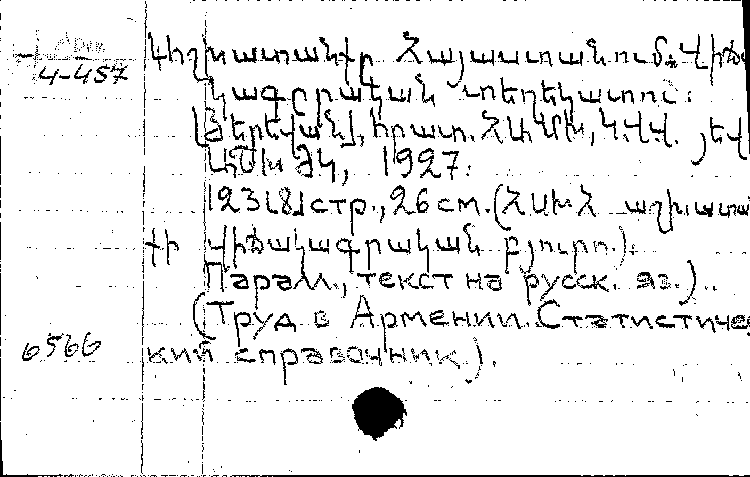 Աշխատանքը Հայաստանում. Վիճա
կագրական տեղեկատու:
[Երեվան], հրատ. ՀԱՄԽ, Կ.Վ.Վ. յեվ
ԱՍԽ ՁԿ, 1927.
123[8]стр., 26см. (ՀՍԽՀ աշխատան
քի վիճակագրական բյուրո.).
Парал., текст на русск. яз.)..
(Труд в Армении. Статистичес
кий справочник.).
4-457
6566